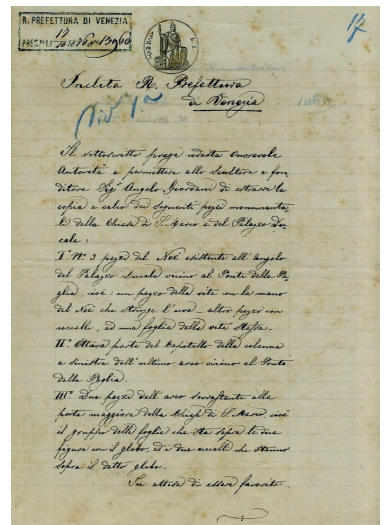 R. PREFETTURA DI VENEZIA
17
Inclita R. Prefettura
di Venezia
Il sottoscritto prega codesta Onorevole
Autorità a permettere allo Scultore e fon-
ditore Sigr Angelo Giordani di estrarre la
copia e calco dei seguenti pezzi monumenta-
li della Chiesa di S. Marco e del Palazzo Du-
cale:
I° N° 3 pezzi del Noè esistente all'angolo
del Palazzo Ducale vicino al Ponte della Pa-
glia, cioè: un pezzo della vite con la mano
del Noè che stringe l'uva - altro pezzo con
uccelli, ed una foglia della vite stessa.
II° Ottava parte del Capitello della colonna
a sinistra dell'ultimo arco vicino al Ponte
della Paglia.
III° Due pezzi dell'arco sovrastante alla
porta maggiore della Chiesa di S. Marco cioè
il gruppo delle foglie che sta sopra le due
figure con il globo, ed i due uccelli che stanno
sopra il detto globo.
In attesa di essere favorito.